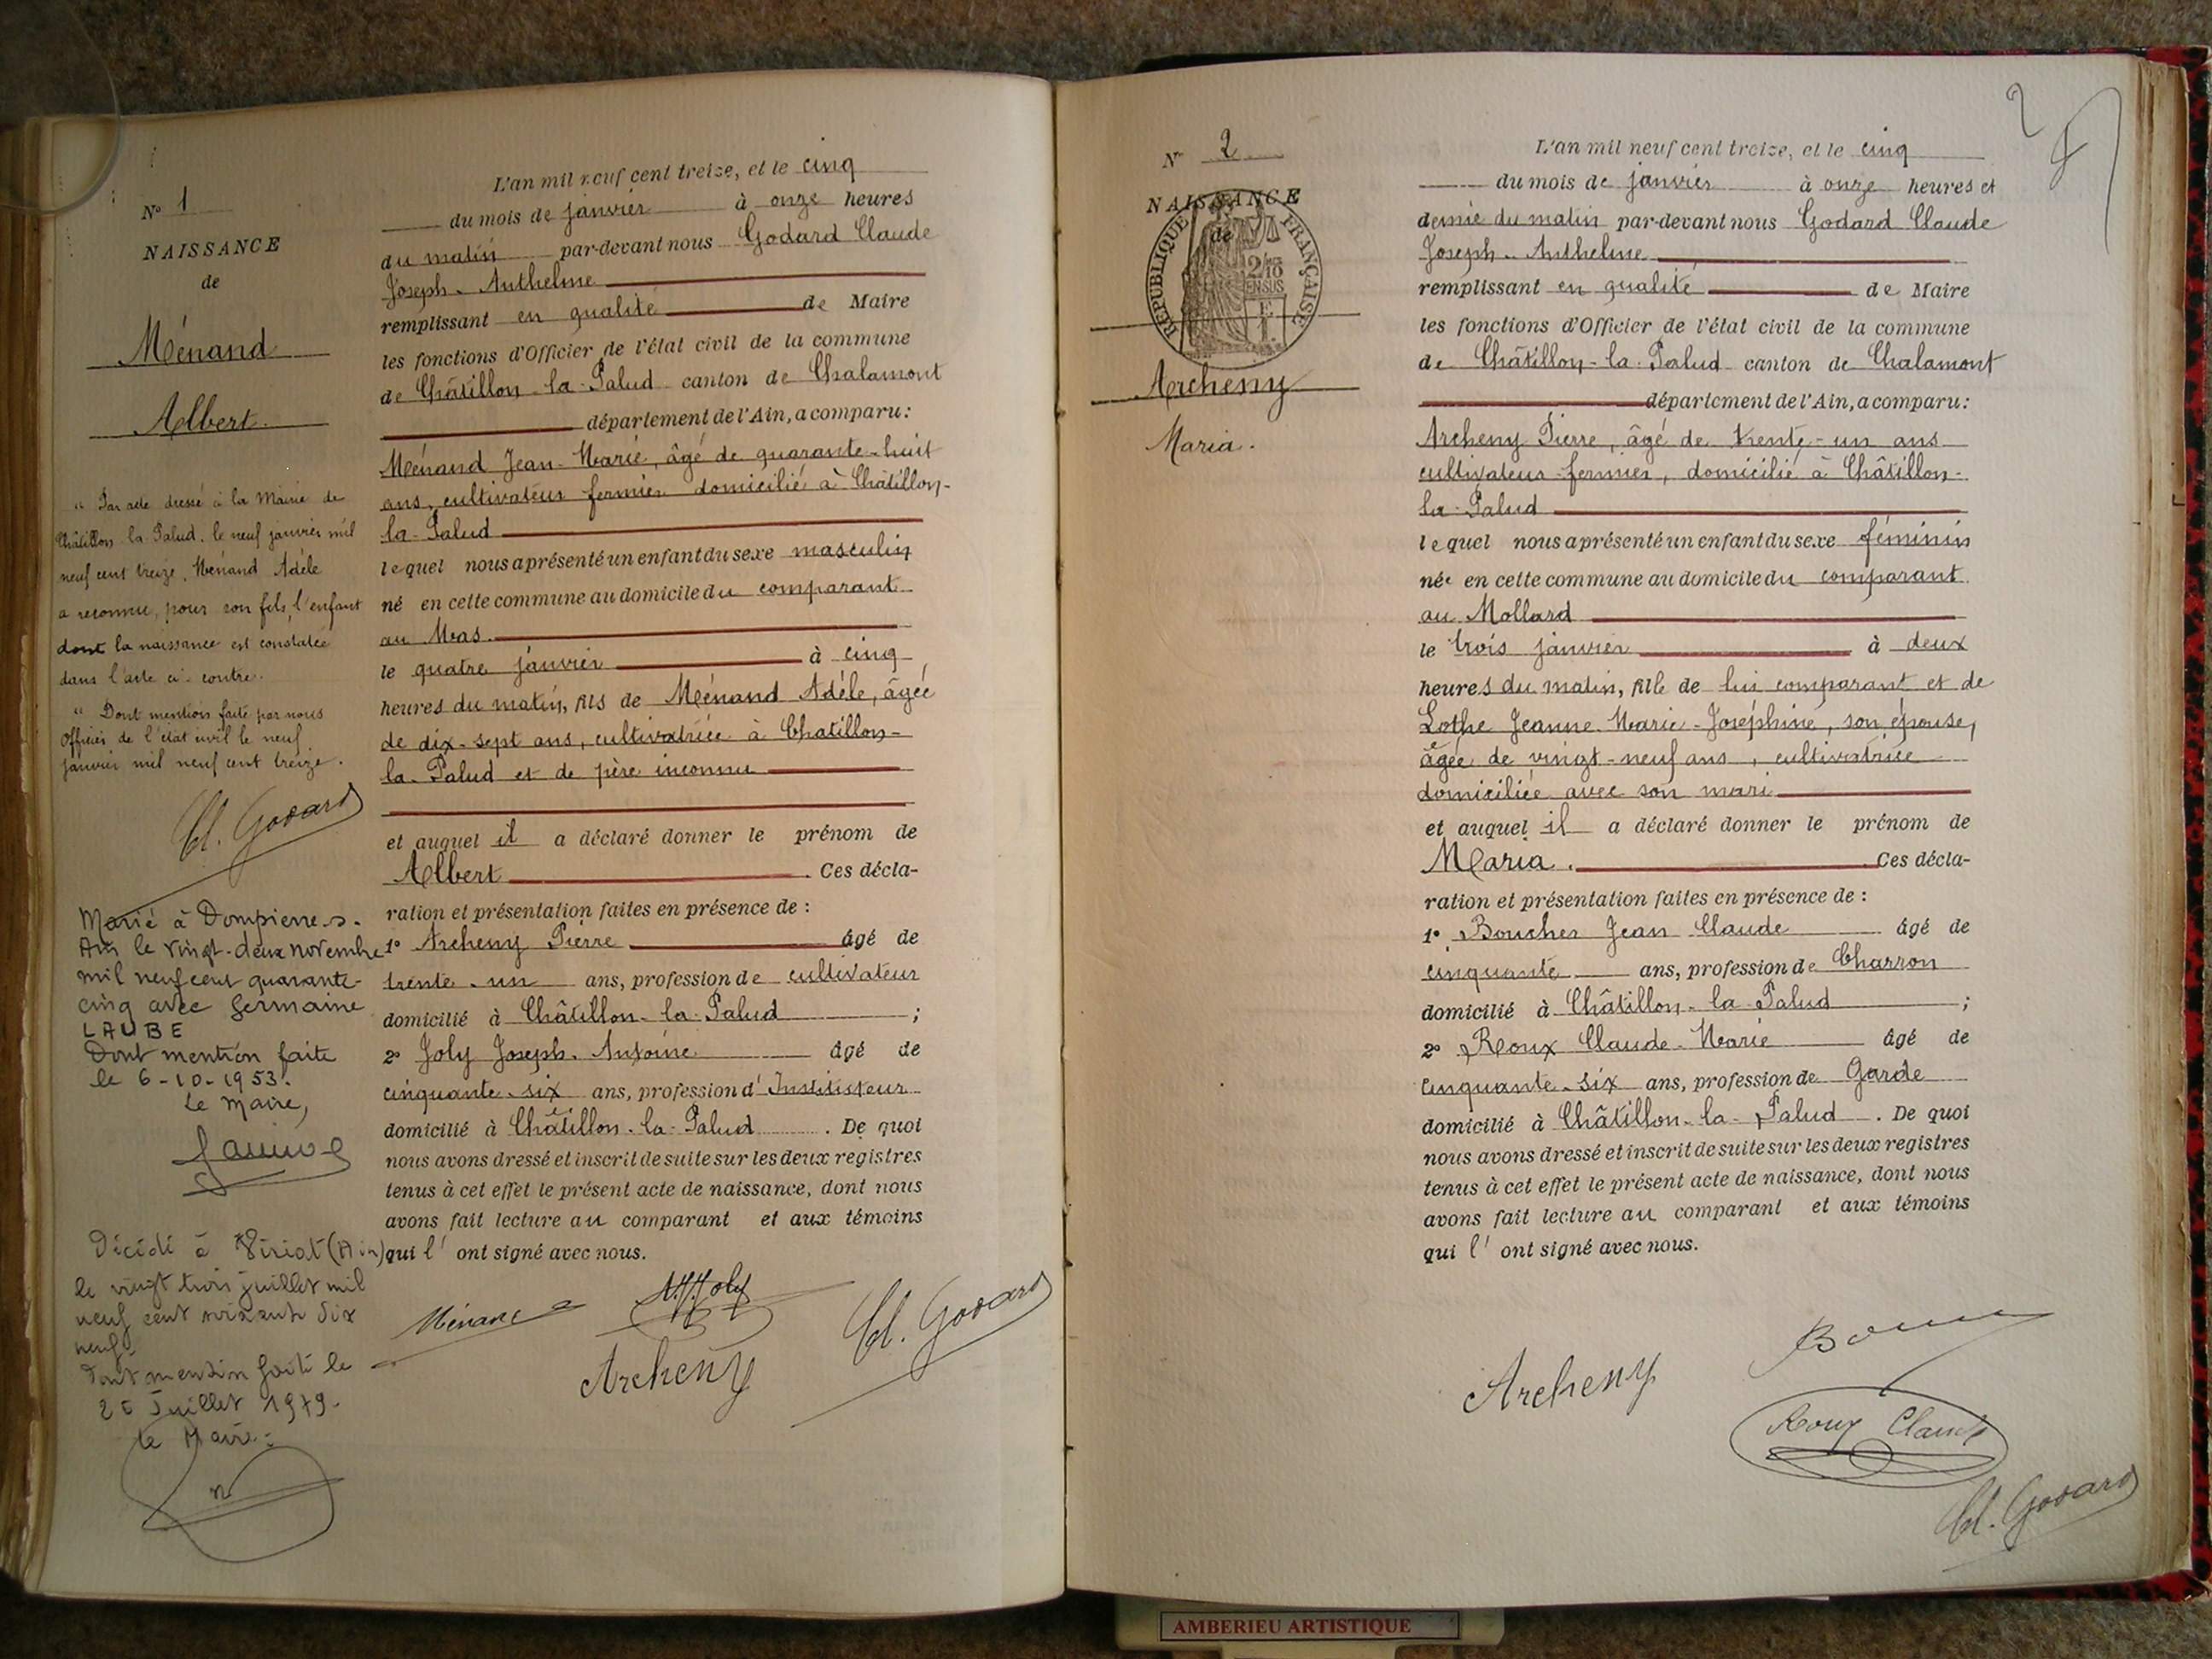 Nº 1
NAISSANCE
de
Ménand
Albert
" Par acte dressé à la Mairie de
Châtillon-la-Palud, le neuf janvier mil
neuf cent treize, Ménand Adèle
a reconnu, pour son fils, l'enfant
dont la naissance est constatée
dans l'acte ci-contre.
" Dont mention faite par nous
Officier de l'état civil le neuf
janvier mil neuf cent treize.
Cl. Godard
Marié à Dompierre-s-
Ain le vingt-deux novembre
mil neuf cent quarante-
cinq avec Germaine
LAUBE
Dont mention faite
le 6-10-1953.
Le Maire,
Décédé à Viriat (Ain)
le vingt trois juillet mil
neuf cent soixante dix
neuf
Dont mention faite le
Juillet 1979.
Le Maire:
L'an mil neuf cent treize, et le cinq
du mois de janvier à onze heures
du matin par-devant nous Godard Claude
Joseph-Anthelme
remplissant en qualité de Maire
les fonctions d'Officier de l'état civil de la commune
de Châtillon-la-Palud canton de Chalamont
département de l'Ain, a comparu:
Ménand Jean-Marie, âgé de quarante-huit
ans, cultivateur fermier domicilié à Châtillon-
la-Palud
lequel nous a présenté un enfant du sexe masculin
né en cette commune au domicile du comparant
au Mas.
le quatre janvier à cinq
heures du matin, fils de Ménand Adèle, âgée
de dix-sept ans, cultivatrice à Chatillon-
la-Palud et de père inconnu
et auquel il a déclaré donner le prénom de
Albert. Ces décla-
ration et présentation faites en présence de :
1º Archeny Pierre âgé de
trente-un ans, profession de cultivateur
domicilié à Châtillon-la-Palud ;
2º Joly Joseph-Antoine âgé de
cinquante-six ans, profession d'Instituteur
domicilié à Châtillon-la-Palud. De quoi
nous avons dressé et inscrit de suite sur les deux registres
tenus à cet effet le présent acte de naissance, dont nous
avons fait lecture au comparant et aux témoins
qui l'ont signé avec nous.
Ménand
Joly
Archeny
Cl. Godard
2
Nº 2
NAISSANCE
de
RÉPUBLIQUE FRANÇAISE
Archeny
Maria.
L'an mil neuf cent treize, et le cinq
du mois de janvier à onze heures et
demie du matin par-devant nous Godard Claude
Joseph-Anthelme
remplissant en qualité de Maire
les fonctions d'Officier de l'état civil de la commune
de Châtillon-la-Palud canton de Chalamont
département de l'Ain, a comparu:
Archeny Pierre, âgé de trente-un ans
cultivateur-fermier, domicilié à Châtillon-
la-Palud
lequel nous a présenté un enfant du sexe féminin
née en cette commune au domicile du comparant
au Mollard
le trois janvier à deux
heures du matin, fille de lui comparant et de
Lothe Jeanne-Marie-Joséphine, son épouse,
âgée de vingt-neuf ans, cultivatrice
domiciliée avec son mari
et auquel il a déclaré donner le prénom de
Maria. Ces décla-
ration et présentation faites en présence de :
1º Boucher Jean Claude âgé de
cinquante ans, profession de Charron
domicilié à Châtillon-la-Palud ;
2º Roux Claude-Marie âgé de
cinquante-six ans, profession de Garde
domicilié à Châtillon-la-Palud. De quoi
nous avons dressé et inscrit de suite sur les deux registres
tenus à cet effet le présent acte de naissance, dont nous
avons fait lecture au comparant et aux témoins
qui l'ont signé avec nous.
Archeny
Roux Claude
Cl. Godard
AMBERIEU ARTISTIQUE